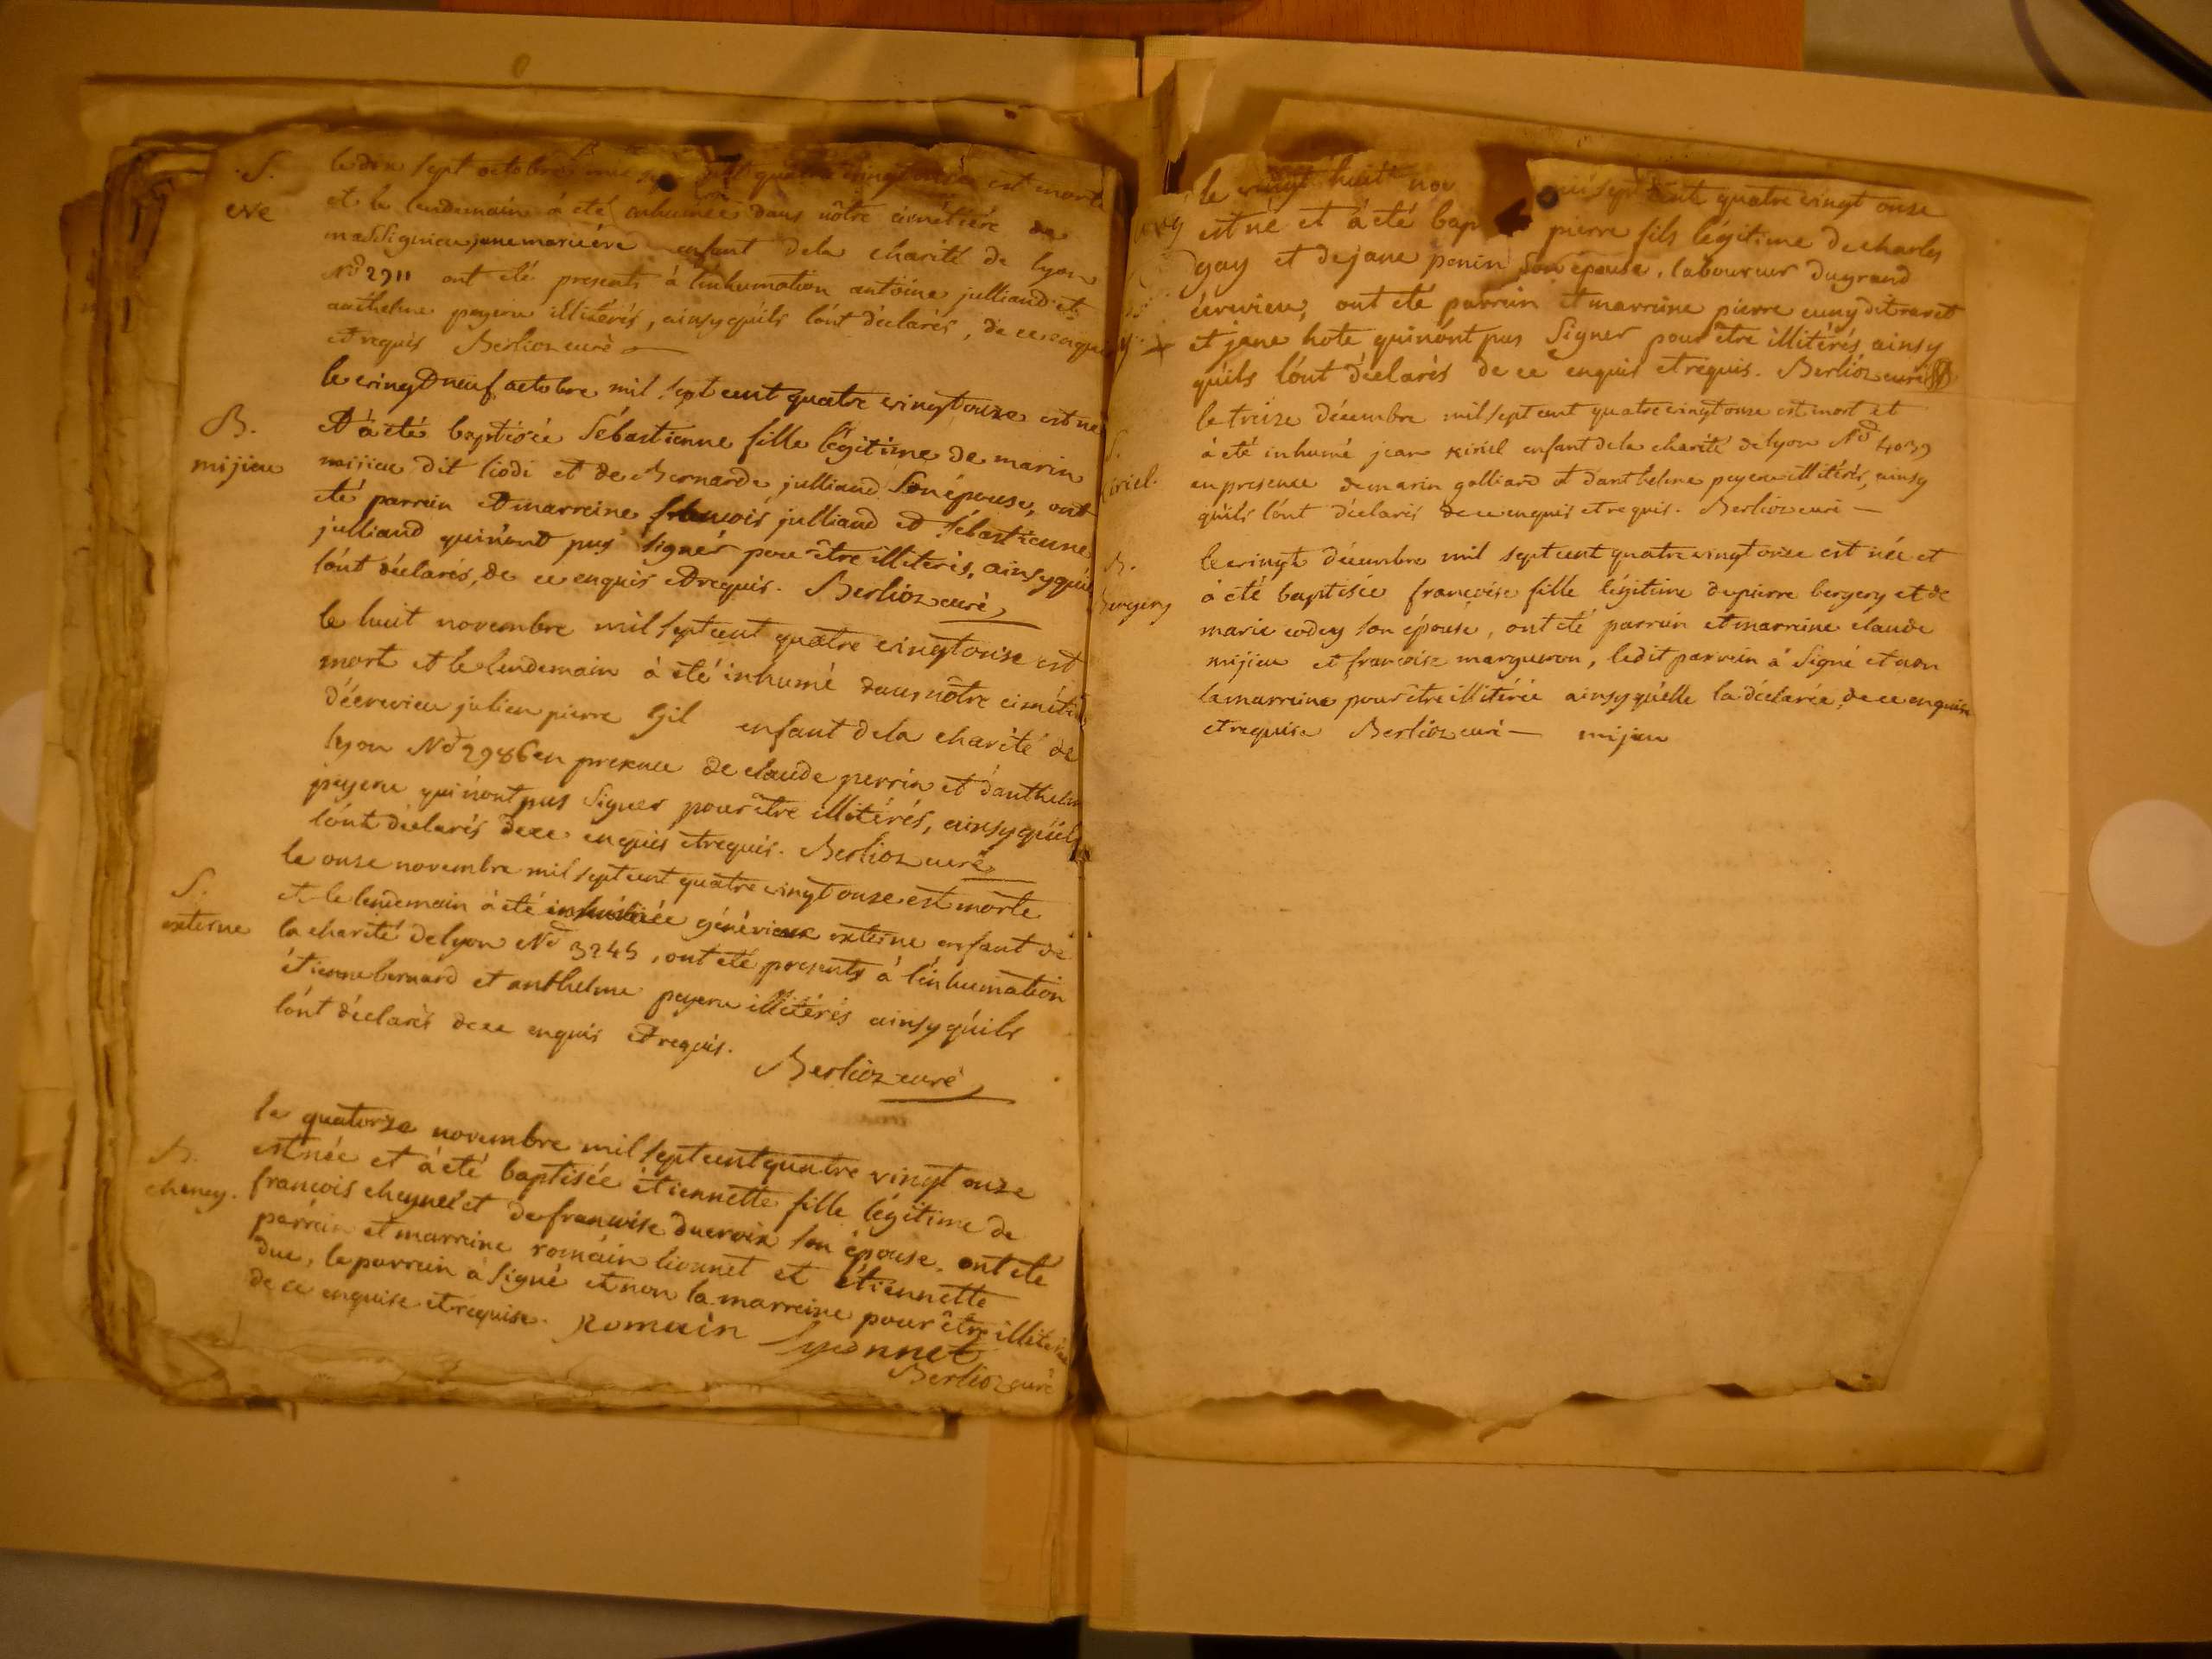 S.
eve
le dix sept octobre mil sept cent quatre vingt onze est morte
et le lendemain à eté inhumée dans nôtre cimétiére de
massignieu jane marie éve enfant dela charité de lyon
No 2911 ont eté presents á l'inhumation antoine julliand et
anthelme peyene illitérés, ainsy qúils lónt déclarés, de ce enquis
et requis Berlioz curé
B.
mijieu
le vingt neuf octobre mil sept cent quatre vingt onze est née
et à eté baptisée Sébastienne fille légitime de marin
mijieu dit liodi et de Bernarde julliand son épouse, ont
eté parrein et marreine francois julliand et Sébastienne
julliand qui nónt pas signés pour être illiterés, ainsy qúils
lónt déclarés, de ce enquis et requis. Berlioz curé
le huit novembre mil sept cent quatre vingt onze est
mort et le lendemain à eté inhumé dans nôtre cimétiére
décrevieu julien pierre Gil enfant dela charité de
lyon No 2986 en presence de claude perrin et d'anthelme
peyene qui nónt pas signer pour être illitérés, ainsy qúils
lónt déclarés de ce enquis et requis. Berlioz curé
S.
externe
le onze novembre mil sept cent quatre vingt onze est morte
et le lendemain à eté inhumée généviéve externe enfant de
la charité de lyon No 3245, ont eté presents á l'inhumation
étienne bernard et anthelme peyene illitérés ainsy qúils
lónt déclarés de ce enquis et requis.
Berlioz curé
B.
cheney.
le quatorze novembre mil sept cent quatre vingt onze
est née et à eté baptisée étiennette fille légitime de
francois cheynel et de francoise ducroix son épouse, ont eté
parrein et marreine romain lionnet et étiennette
duc, le parrein à signé et non la marreine pour être illiterée
de ce enquise et requise. Romain Lyonnet
Berlioz curé
le vingt huit nov mil sept cent quatre vingt onze
est né et à eté bap pierre fils légitime de charles
gay et de jane penin son épouse, laboureur du grand
cerevieu, ont eté parrein et marreine pierre cuny dit ravet
et jane hote qui nónt pas signer pour être illitérés ainsy
qúils lónt déclarés de ce enquis et requis. Berlioz curé
S.
kiriel.
le treize décembre mil sept cent quatre vingt onze est mort et
à eté inhumé jean kiriel enfant dela charité de lyon No 4039
en presence de marin galliard et d'anthelme peyene illitérés, ainsy
qúils lónt déclarés de ce enquis et requis. Berlioz curé
B.
bergery
le vingt décembre mil sept cent quatre vingt onze est née et
à eté baptisée francoise fille légitime de pierre bergery et de
marie codey son épouse, ont eté parrein et marreine claude
mijieu et francoise margueron, ledit parrein à signé et non
la marreine pour être illitérée ainsy qúelle la déclarée, de ce enquise
et requise Berlioz curé mijieu